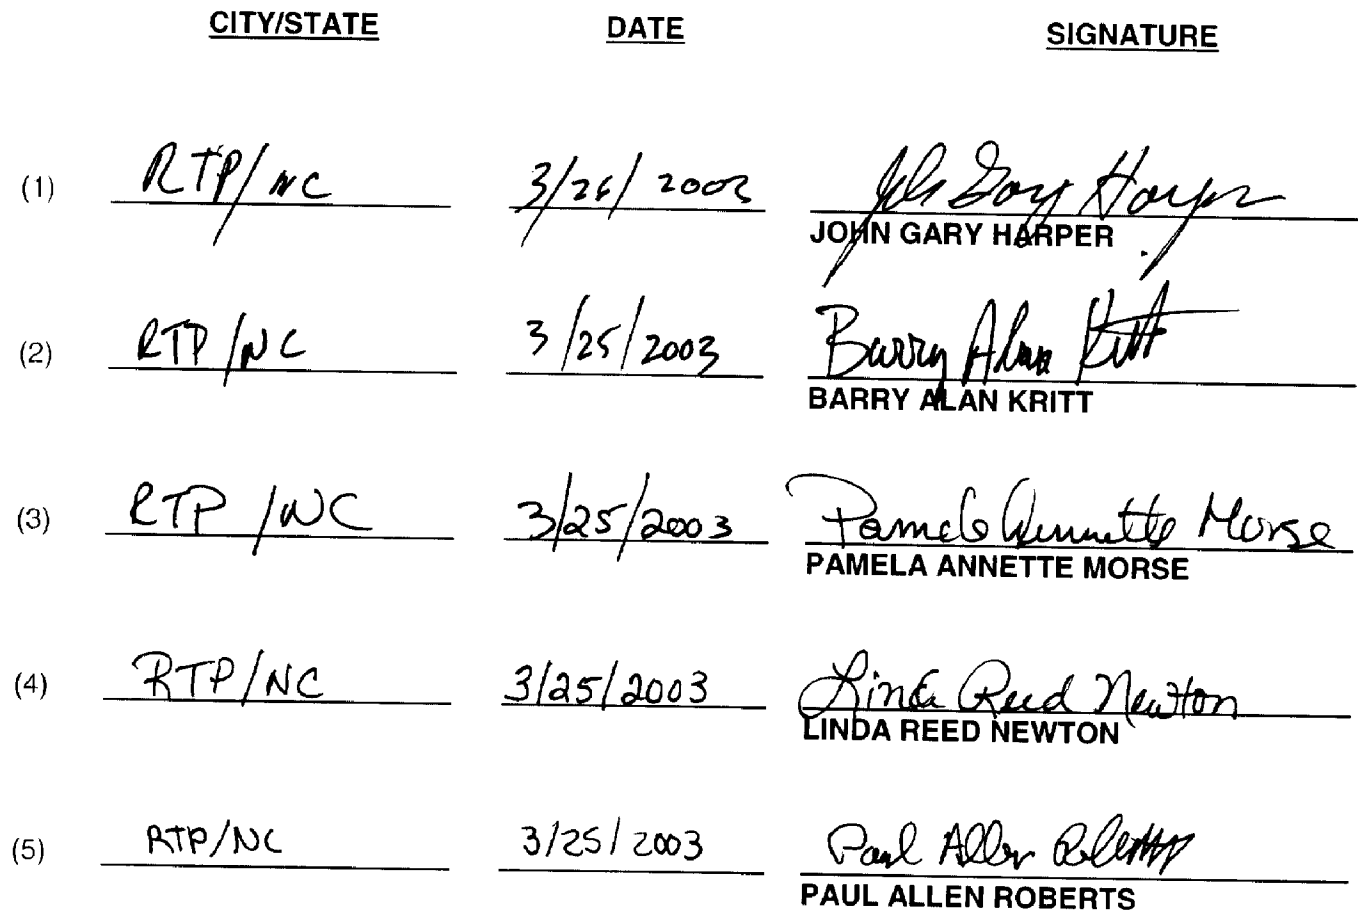 CITY/STATE DATE SIGNATURE
(1) RTP/NC 3/26/2003 John Gary Harper
JOHN GARY HARPER
(2) RTP/NC 3/25/2003 Barry Alan Kritt
BARRY ALAN KRITT
(3) RTP/NC 3/25/2003 Pamela Annette Morse
PAMELA ANNETTE MORSE
(4) RTP/NC 3/25/2003 Linda Reed Newton
LINDA REED NEWTON
(5) RTP/NC 3/25/2003 Paul Allen Roberts
PAUL ALLEN ROBERTS